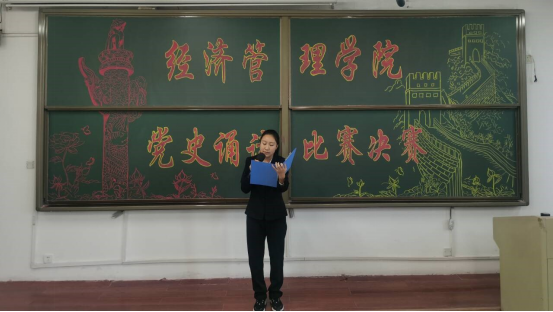 经济管理学院
党史诵读比赛决赛